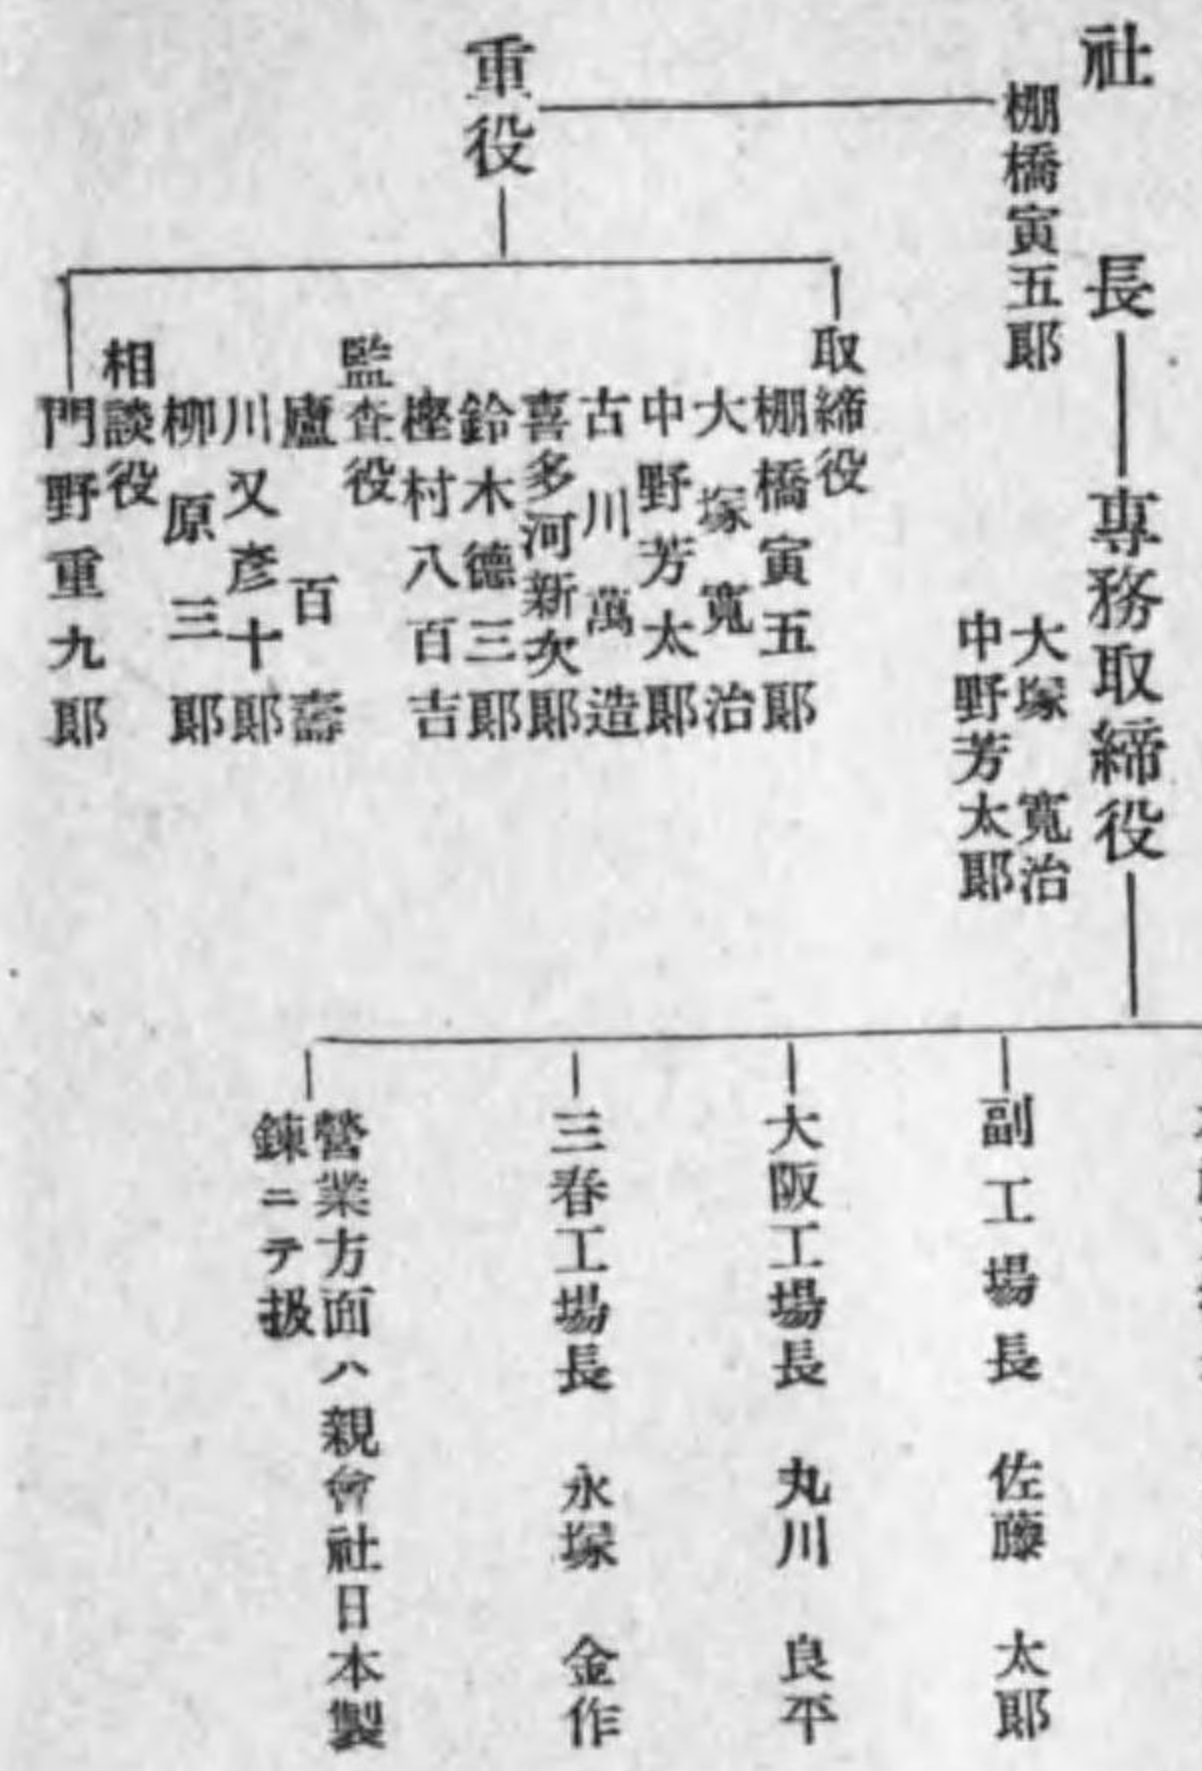 社長
棚橋寅五郞
專務取締役
大塚寬治
中野芳太郞
重役
取締役
棚橋寅五郞
大塚寬治
中野芳太郞
古川萬造
喜多河新次郞
鈴木德三郞
樫村八百吉
監査役
廬百壽
川又彥十郞
柳原三郞
相談役
門野重九郞
副工場長 佐藤太郞
大阪工場長 丸川良平
三春工場長 永塚金作
營業方面ハ親會社日本製
鍊ニテ扱